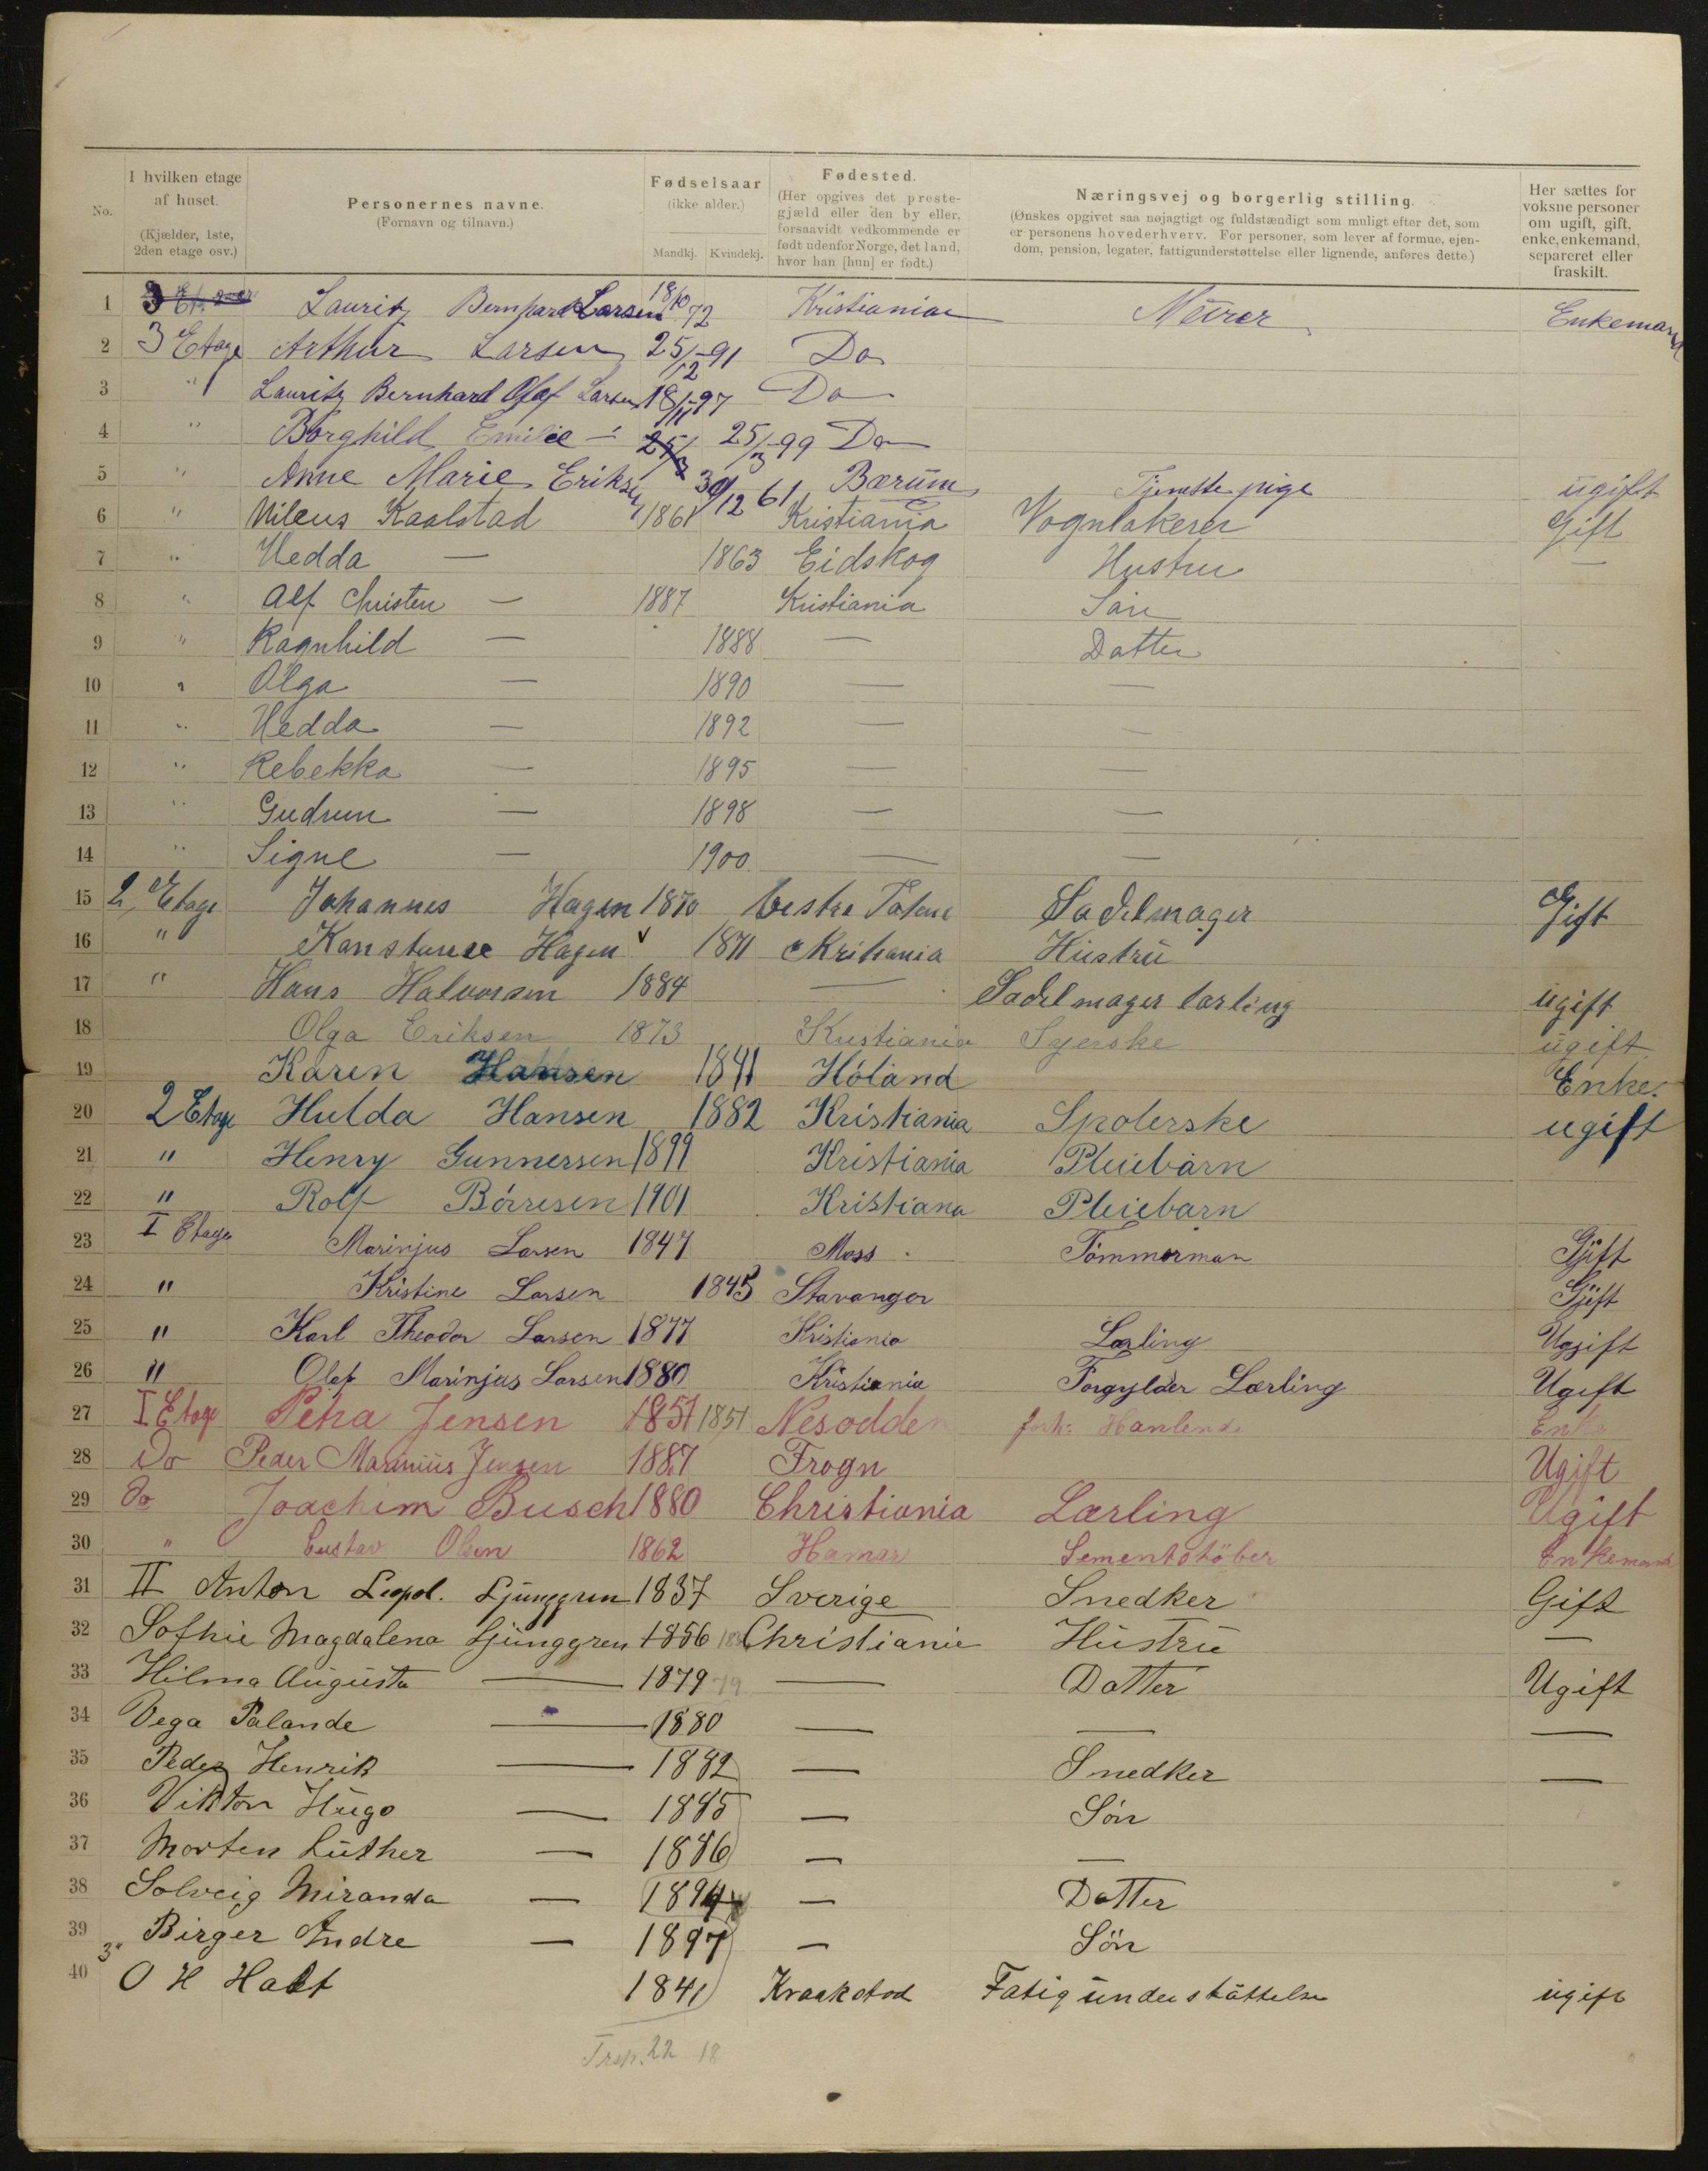 No.
I hvilken etage af huset.
(Kjælder, 1ste, 2den etage osv.)
Personernes navne.
(Fornavn og tilnavn.)
Fødselsaar
(ikke alder.)
Mandkj. Kvindekj.
Fødested.
(Her opgives det prestegjæld eller den by eller, forsaavidt vedkommende er født udenfor Norge, det land, hvor han [hun] er født.)
Næringsvej og borgerlig stilling.
(Ønskes opgivet saa nøjagtigt og fuldstændigt som muligt efter det, som er personens hovederhverv. For personer, som lever af formue, ejendom, pension, legater, fattigunderstøttelse eller lignende, anføres dette.)
Her sættes for voksne personer om ugift, gift, enke, enkemand, separeret eller fraskilt.
1 Lauritz Bernhard Larsen 18/10 72 Kristiania Mürer Enkemand
2 3 Etage Arthur Larsen 25/12-91 Do
3 " Lauritz Bernhard Olaf Larsen 18/11-97 Do
4 " Borghild Emilie - 25/3 25/3-99 Do
5 " Anne Marie Eriksen 30/12 61 Bærüm Tjeneste pige ugift
6 " Nileus Kaalstad 1861 Kristiania Vognlakerer Gift
7 " Hedda — 1863 Eidskog Hustru —
8 " Alf Christen — 1887 Kristiania Søn
9 " Ragnhild — 1888 — Datter
10 " Olga — 1890 — —
11 " Hedda — 1892 — —
12 " Rebekka — 1895 — —
13 " Gudrun — 1898 — —
14 " Signe — 1900 — —
15 2 Etage Johannes Hagen 1870 Vestre Toten Sadelmager Gift
16 " Konstanse Hagen 1871 Krihania Hüstrü
17 " Hans Halvorsen 1884 — Sadelmager lærling ügift
18 Olga Eriksen 1873 Kristiania Syerske ügift
19 Karen Hansen 1841 Høland Enke.
20 2 Etage Hulda Hansen 1882 Kristiania Spolerske ugift
21 " Henry Gunnersen 1899 Kristiania Pleiebarn
22 " Rolf Börresen 1901 Kristiana Pleiebarn
23 I Etage Marinjus Larsen 1847 Moss Tömmerman Gjift
24 " Kristine Larsen 1845 Stavanger Gjift
25 " Karl Theodor Larsen 1877 Kristiania Lærling Ugjift
26 " Olaf Marinjus Larsen 1880 Kristiania Forgylder Lærling Ugift
27 I Etage Petra Jensen 1851 1851 Nesodden Enke
28 Do Peder Marinüs Jensen 1887 Frogn Ugift
29 do Joachim Busch 1880 Christiania Lærling Ugift
30 " Gustav Olsen 1862 Hamar Sementstöber Enkemand
31 II Anton Leopol. Ljunggren 1837 Sverige Snedker Gift
32 Sofhie Magdalena Ljunggren 1856 Christiania Hüstrü —
33 Hilma Augüsta — 1879 79 — Datter Ugift
34 Vega Palande — 1880 — — —
35 Peder Henrik — 1882 — Snedker —
36 Viktor Hügo — 1885 — Sön
37 Morten Lüther — 1886 — —
38 Solveig Miranda — 1894 — Datter
39 Birger Andre — 1897 — Sön
40 3" O H Halt 1841 Kraakstad Fatig ünderstöttelse ügift
22 18